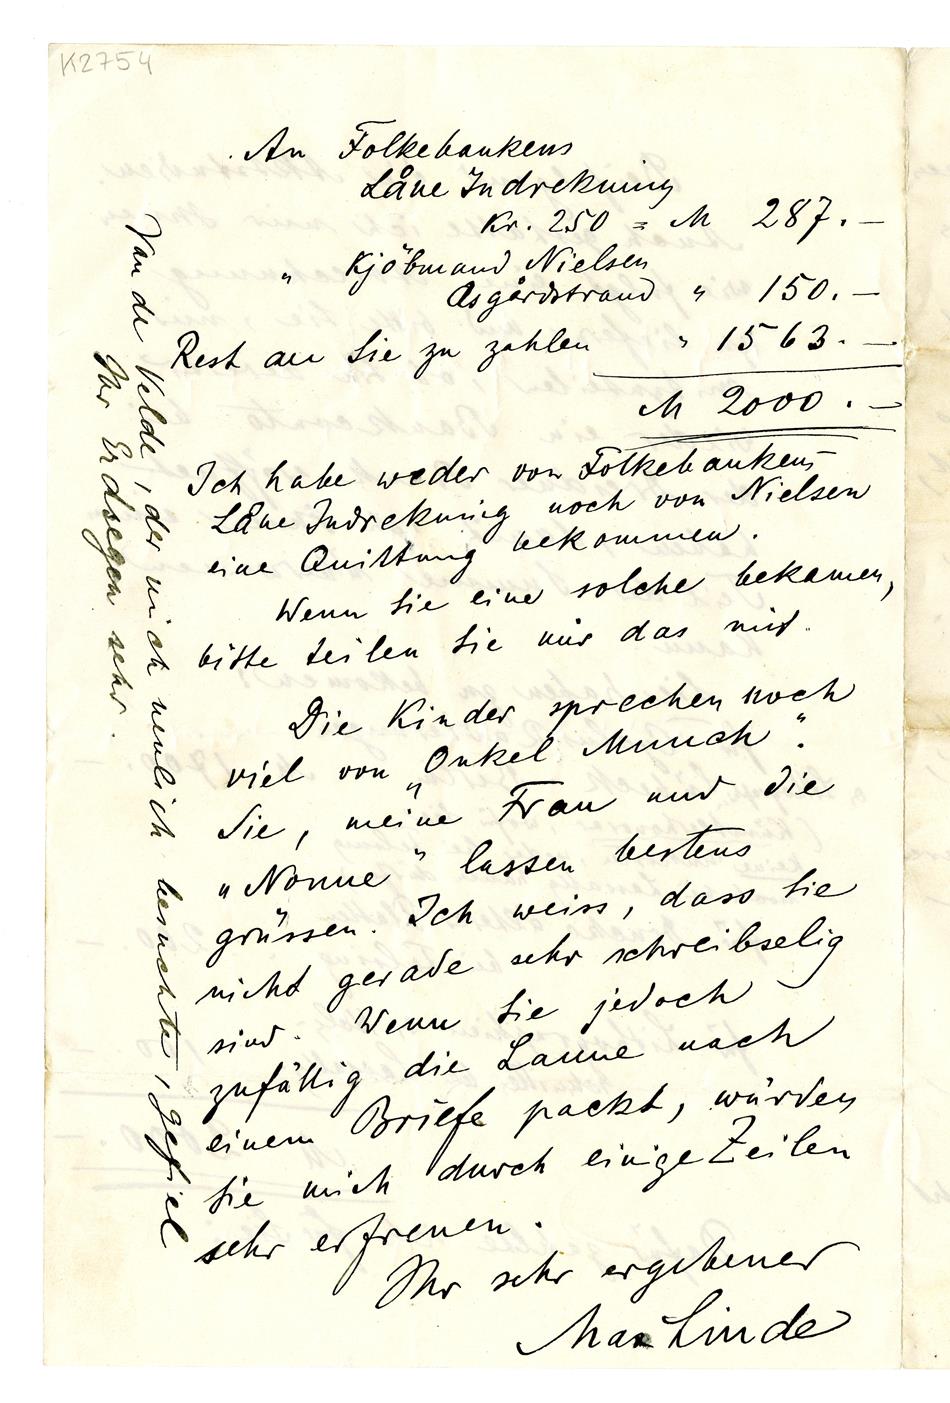 K2754
An Folkebankens
Låne Indrekning
Kr. 250 = M 287.—
" Kjöbmand Nielsen
Asgårdstrand " 150.—
Rest an Sie zu zahlen " 1563.—
M 2000.—
Ich habe weder von Folkebankens
Låne Indrekning noch von Nielsen
eine Quittung bekommen.
Wenn Sie eine solche bekamen,
bitte teilen Sie mir das mit.
Die Kinder sprechen noch
viel von „Onkel Munch".
Sie, meine Frau und die
„Nonne" lassen bestens
grüssen. Ich weiss, dass Sie
nicht gerade sehr schreibselig
sind. Wenn Sie jedoch
zufällig die Laune nach
einem Briefe packt, würden
Sie mich durch einige Zeilen
sehr erfreuen.
Ihr sehr ergebener
Max Linde
Van de Velde, der mich neulich besuchte, gefiel
Ihr Erdsegen sehr.